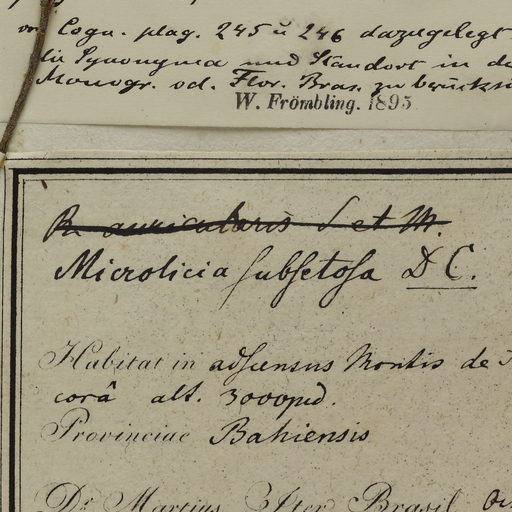 Cogn. plag. 245 u 246 dazugelegt
die Synonyma und Standort in de
Monogr. od. Flor. Bras. zu berücksi
W. Frömbling. 1895
R. auricularis S et M.
Microlicia subsetosa DC.
Habitat in adscensus Montis de
corâ alt. 3000ped.
Provinciae Bahiensis
Dr. Martius Iter Brasil.